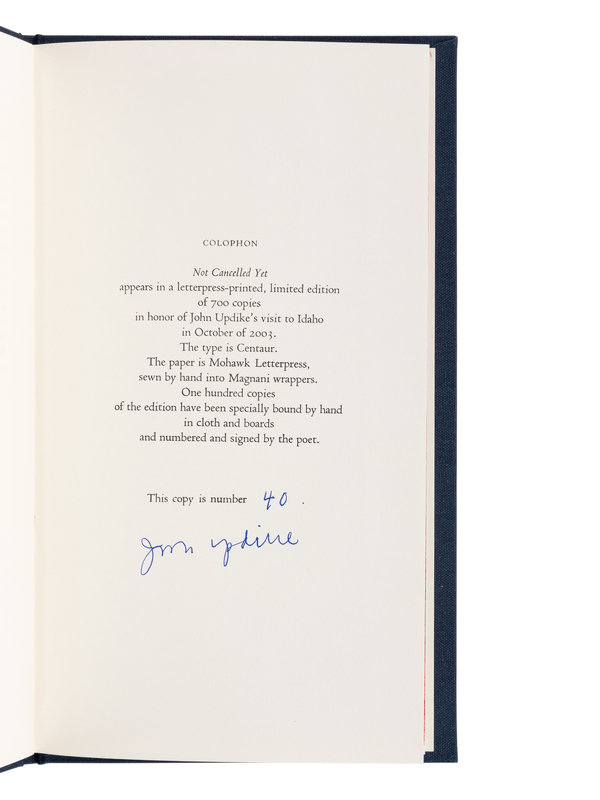 COLOPHON
Not Cancelled Yet
appears in a letterpress-printed, limited edition
of 700 copies
in honor of John Updike's visit to Idaho
in October of 2003.
The type is Centaur.
The paper is Mohawk Letterpress,
sewn by hand into Magnani wrappers.
One hundred copies
of the edition have been specially bound by hand
in cloth and boards
and numbered and signed by the poet.
This copy is number 40 .
John Updike